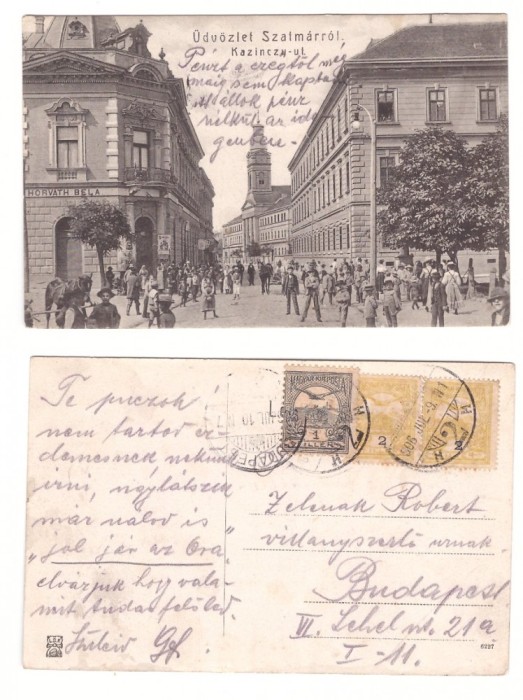 Üdvözlet Szatmárról.
Kazinczy-ut.
Pénzt a cregtől még
máig sem kapta
állok pénz
nélkül az ide
genben.
HORVÁTH BÉLA
Te puczok!
nem tartod ér
demesnek nekünk
írni, úgylátszik
már nálad is
"jól jár az Óra"
elvárjuk hogy vala-
mit tudas felőled.
Szüleid
MAGYAR KIR. POSTA
1
2
2
BUDAPEST
Zelenak Robert
villanyszerlő urnak
Budapest
VI. Lehel ut. 21a
I-11.
6237